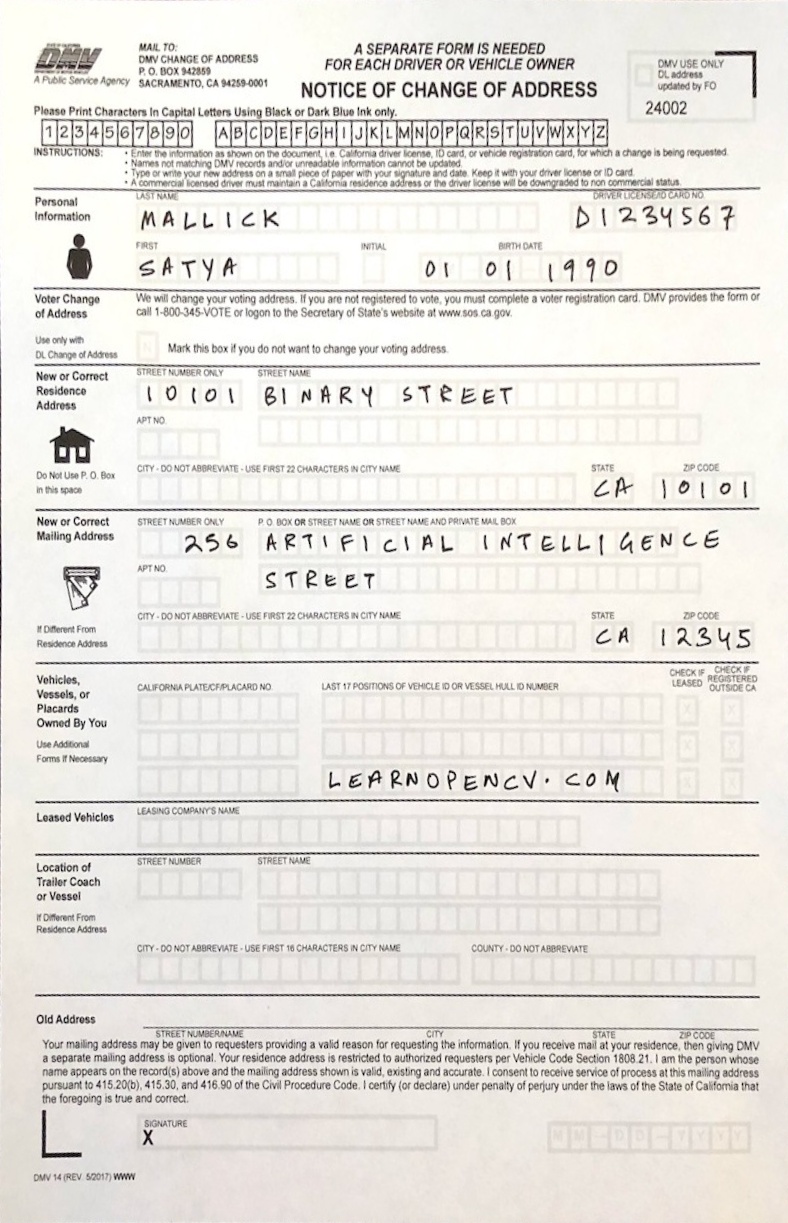 STATE OF CALIFORNIA
DMV
DEPARTMENT OF MOTOR VEHICLES
A Public Service Agency
MAIL TO:
DMV CHANGE OF ADDRESS
P. O. BOX 942859
SACRAMENTO, CA 94259-0001
A SEPARATE FORM IS NEEDED
FOR EACH DRIVER OR VEHICLE OWNER
NOTICE OF CHANGE OF ADDRESS
DMV USE ONLY
DL address
updated by FO
24002
Please Print Characters In Capital Letters Using Black or Dark Blue Ink only.
1 2 3 4 5 6 7 8 9 0 A B C D E F G H I J K L M N O P Q R S T U V W X Y Z
INSTRUCTIONS:
• Enter the information as shown on the document, i.e. California driver license, ID card, or vehicle registration card, for which a change is being requested.
• Names not matching DMV records and/or unreadable information cannot be updated.
• Type or write your new address on a small piece of paper with your signature and date. Keep it with your driver license or ID card.
• A commercial licensed driver must maintain a California residence address or the driver license will be downgraded to non commercial status.
Personal
Information
LAST NAME
MALLICK
DRIVER LICENSE/ID CARD NO.
D1234567
FIRST
SATYA
INITIAL
BIRTH DATE
01 01 1990
Voter Change
of Address
We will change your voting address. If you are not registered to vote, you must complete a voter registration card. DMV provides the form or
call 1-800-345-VOTE or logon to the Secretary of State's website at www.sos.ca.gov.
Use only with
DL Change of Address
N
Mark this box if you do not want to change your voting address.
New or Correct
Residence
Address
Do Not Use P. O. Box
in this space
STREET NUMBER ONLY
10101
STREET NAME
BINARY STREET
APT NO.
CITY - DO NOT ABBREVIATE - USE FIRST 22 CHARACTERS IN CITY NAME
STATE
CA
ZIP CODE
10101
New or Correct
Mailing Address
If Different From
Residence Address
STREET NUMBER ONLY
256
P. O. BOX OR STREET NAME OR STREET NAME AND PRIVATE MAIL BOX
ARTIFICIAL INTELLIGENCE
APT NO.
STREET
CITY - DO NOT ABBREVIATE - USE FIRST 22 CHARACTERS IN CITY NAME
STATE
CA
ZIP CODE
12345
Vehicles,
Vessels, or
Placards
Owned By You
Use Additional
Forms If Necessary
CALIFORNIA PLATE/CF/PLACARD NO.
LAST 17 POSITIONS OF VEHICLE ID OR VESSEL HULL ID NUMBER
CHECK IF
LEASED
CHECK IF
REGISTERED
OUTSIDE CA
X X
X X
LEARNOPENCV.COM
X X
Leased Vehicles
LEASING COMPANY'S NAME
Location of
Trailer Coach
or Vessel
If Different From
Residence Address
STREET NUMBER
STREET NAME
CITY - DO NOT ABBREVIATE - USE FIRST 16 CHARACTERS IN CITY NAME
COUNTY - DO NOT ABBREVIATE
Old Address
STREET NUMBER/NAME
CITY
STATE
ZIP CODE
Your mailing address may be given to requesters providing a valid reason for requesting the information. If you receive mail at your residence, then giving DMV
a separate mailing address is optional. Your residence address is restricted to authorized requesters per Vehicle Code Section 1808.21. I am the person whose
name appears on the record(s) above and the mailing address shown is valid, existing and accurate. I consent to receive service of process at this mailing address
pursuant to 415.20(b), 415.30, and 416.90 of the Civil Procedure Code. I certify (or declare) under penalty of perjury under the laws of the State of California that
the foregoing is true and correct.
SIGNATURE
X
M M - D D - Y Y Y Y
DMV 14 (REV. 5/2017) WWW